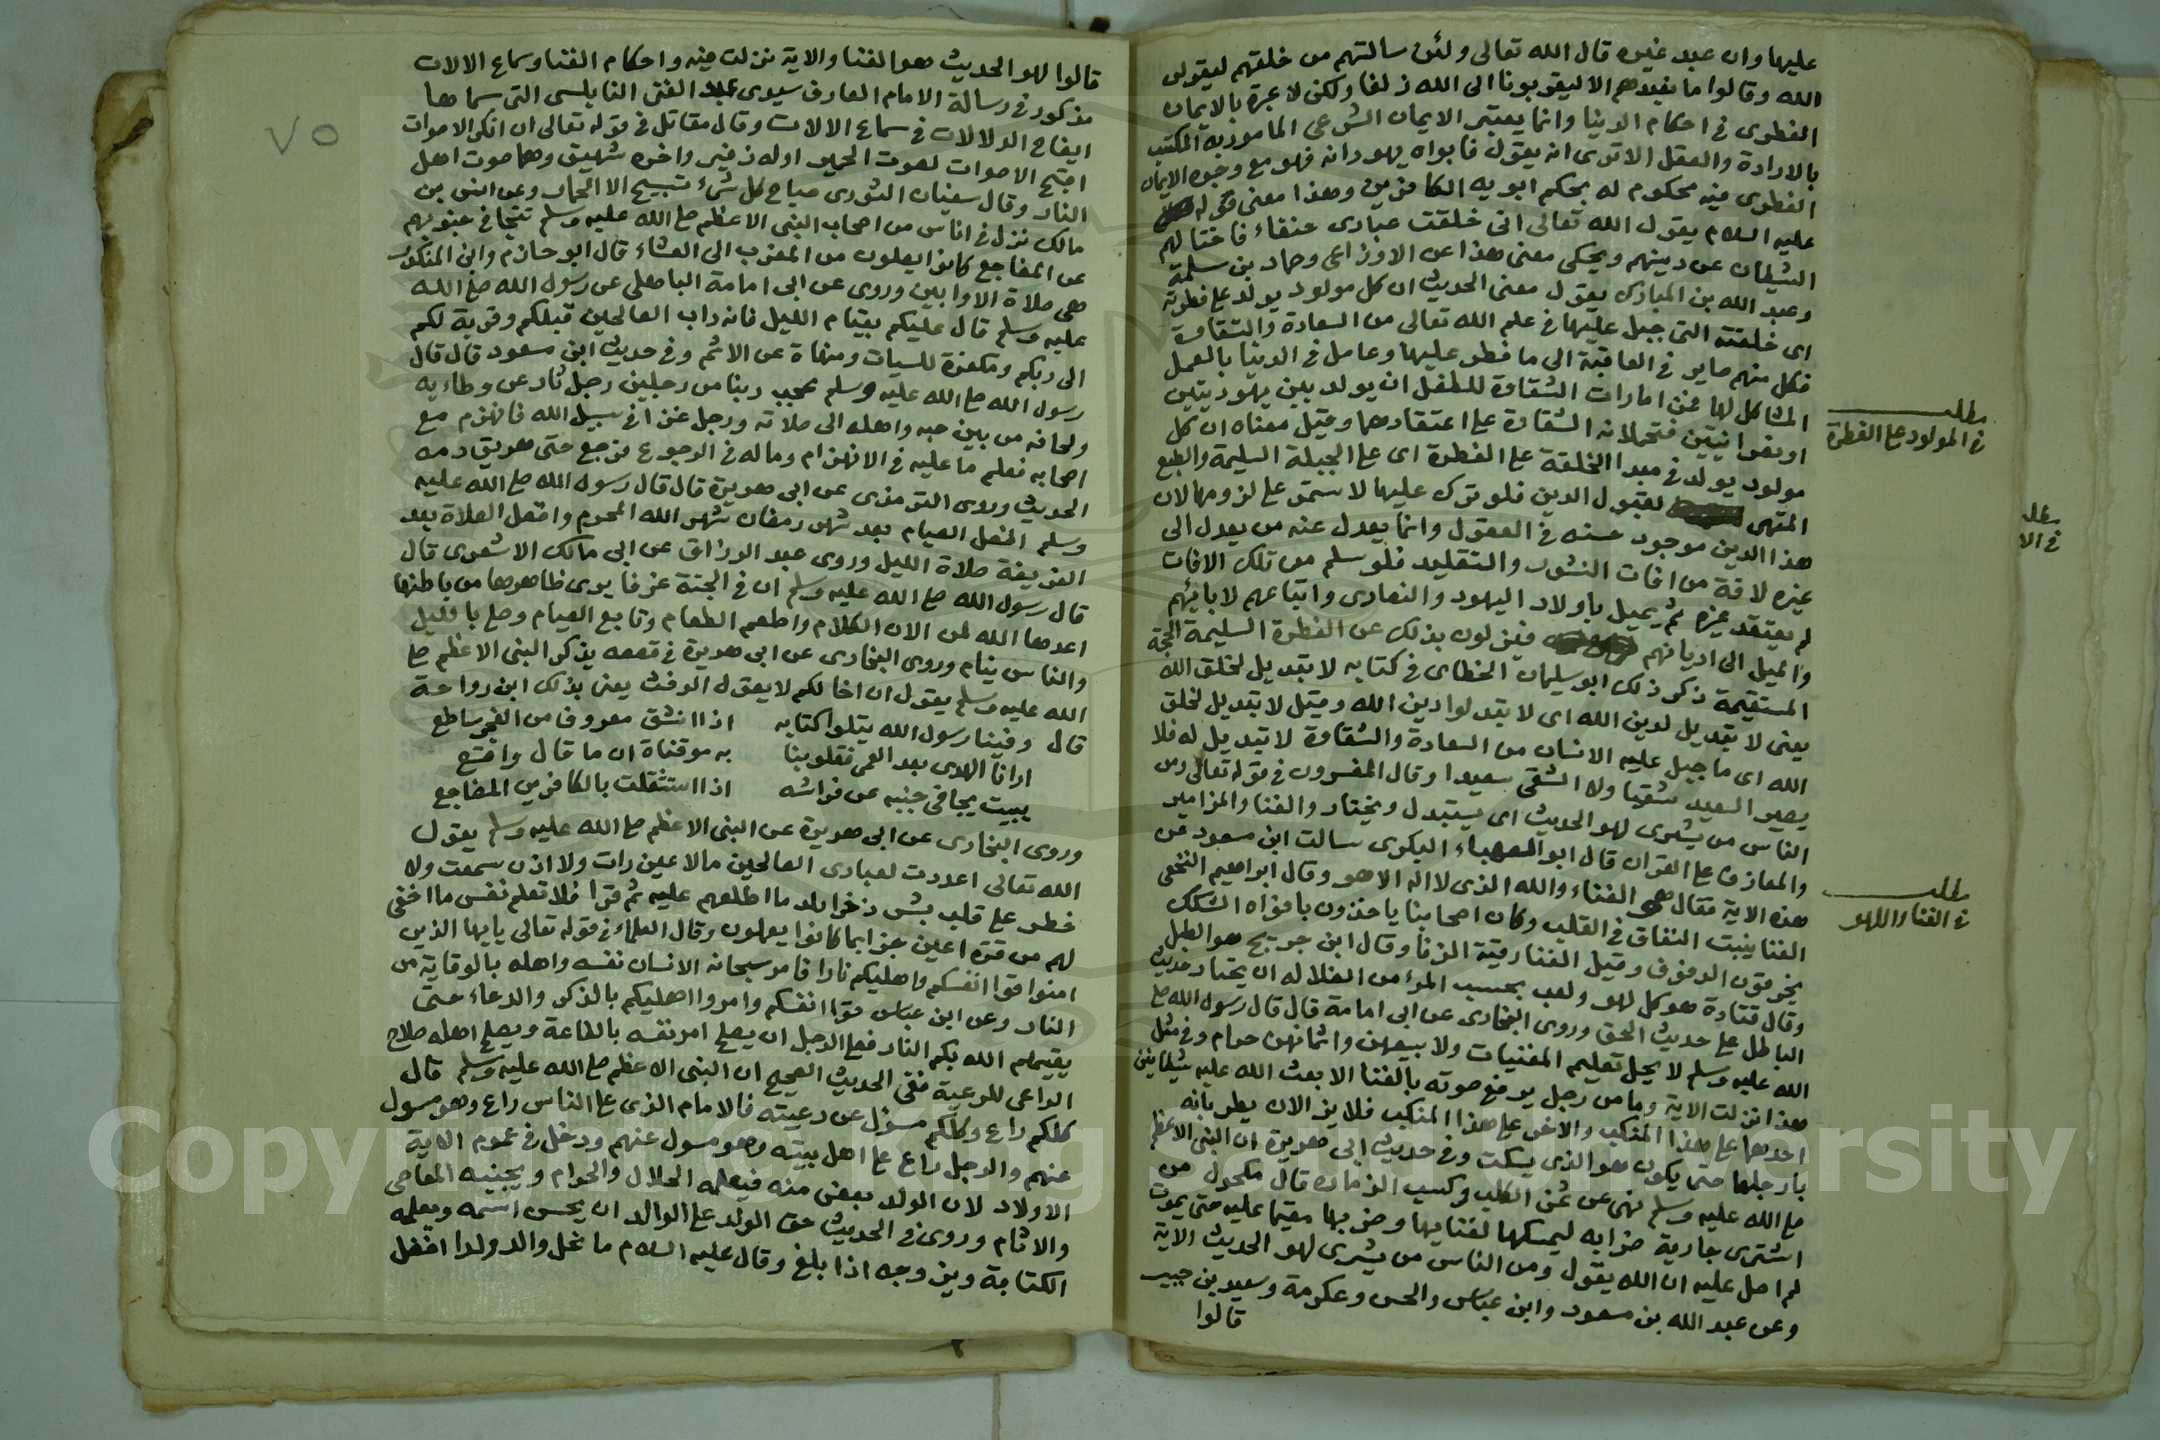 عليها وان عبد غيره قال الله تعالى ولئن سالتهم من خلقهم ليقولن
الله وقالوا ما نعبدهم الا ليقربونا الى الله زلفا ولكن لا عبرة بالايمان
الفطرى فى احكام الدنيا وانما يعتبر الايمان الشرعى المامور به المكتسب
بالارادة والعقل الا ترى انه يقول فابواه يهودانه فهو مع وجود الايمان
الفطرى فيه محكوم له بحكم ابويه الكافرين وهذا معنى قوله
عليه السلام يقول الله تعالى انى خلقت عبادى حنفاء فاختالهم
الشيطان عن دينهم ويحكى معنى هذا عن الاوزاعى وحماد بن سلمة
وعبد الله بن المبارك يقول معنى الحديث ان كل مولود يولد على فطرته
اى خلقته التى جبل عليها فى علم الله تعالى من السعادة والشقاوة
فكل منهم صاير فى العاقبة الى ما فطر عليها وعامل فى الدنيا بالعمل
المشاكل لها فمن امارات الشقاوة للطفل ان يولد بين يهوديين
او نصرانيين فتحملانه الشقاوة على اعتقادهما وقيل معناه ان كل
مولود يولد فى مبدا الخلقة على الفطرة اى على الجبلة السليمة والطبع
المتهى لقبول الدين فلو ترك عليها لاستمر على لزومها لان
هذا الدين موجود حسنه فى العقول وانما يعدل عنه من يعدل الى
غيره لافة من افات النشور والتقليد فلو سلم من تلك الافات
لم يعتقد غيره ثم يميل باولاد اليهود والنصارى واتباعهم لابائهم
والميل الى اديانهم فيزلون بذلك عن الفطرة السليمة الحجة
المستقيمة ذكر ذلك ابو سليمان الخطابى فى كتابه لا تبديل لخلق الله
يعنى لا تبديل لدين الله اى لا تبدلوا دين الله وقيل لا تبديل لخلق
الله اى ما جبل عليه الانسان من السعادة والشقاوة لا تبديل له فلا
يصير السعيد شقيا ولا الشقى سعيدا وقال المفسرون فى قوله تعالى ومن
الناس من يشترى لهو الحديث اى يستبدل ويختار والغنا والمزامير
والمعازف على القران قال ابو الصهباء البكرى سالت ابن مسعود عن
هذه الاية فقال هى الغناء والله الذى لا اله الا هو وقال ابراهيم النخعى
الغنا ينبت النفاق فى القلب وكان اصحابنا ياخذون بافواه السكك
يخرقون الدفوف وقيل الغنا رقية الزنا وقال ابن جريج هو الطبل
وقال قتادة هو كل لهو ولعب بحسب المرء من الضلالة ان يختار حديث
الباطل على حديث الحق وروى البخارى عن ابى امامة قال قال رسول الله صلى
الله عليه وسلم لا يحل تعليم المغنيات ولا بيعهن واثمانهن حرام وفى مثل
هذا نزلت الاية وما من رجل يرفع صوته بالغنا الا بعث الله عليه شيطانين
احدهما على هذا المنكب والاخر على هذا المنكب فلا يزالان يضربانه
بارجلهما حتى يكون هو الذى يسكت وفى حديث ابى هريرة ان النبى الاعظم
صلى الله عليه وسلم نهى عن ثمن الكلب وكسب الزماره قال مكحول من
اشترى جارية ضرابه ليمسكها لغنايها وضربها مقيما عليه حتى يموت
لم اصل عليه ان الله يقول ومن الناس من يشترى لهو الحديث الاية
وعن عبد الله بن مسعود وابن عباس والحسن وعكرمة وسعيد بن جبير
قالوا
مطلب
فى المولود على الفطرة
مطلب
فى الغنا واللهو
قالوا لهو الحديث هو الغنا والاية نزلت فيه واحكام الغنا وسماع الالات
مذكور فى رسالة الامام العارف سيدى عبد الغنى النابلسى التى سماها
ايضاح الدلالات فى سماع الالات وقال مقاتل فى قوله تعالى ان انكر الاصوات
اقبح الاصوات لصوت الحمير اوله زفير واخره شهيق وهما صوت اهل
النار وقال سفيان الثورى صياح كل شىء تسبيح الا الحمار وعن انس بن
مالك نزل فى اناس من اصحاب النبى الاعظم صلى الله عليه وسلم تتجافى جنوبهم
عن المضاجع كانوا يصلون من المغرب الى العشاء قال ابو حازم وابن المنكدر
هى صلاة الاوابين وروى عن ابى امامة الباهلى عن رسول الله صلى الله
عليه وسلم قال عليكم بقيام الليل فانه داب الصالحين قبلكم وقربة لكم
الى ربكم ومكفرة للسيات ومنهاة عن الاثم وفى حديث ابن مسعود قال قال
رسول الله صلى الله عليه وسلم عجب ربنا من رجلين رجل ثار عن وطاءيه
ولحافه من بين حبه واهله الى صلاته ورجل غزا فى سبيل الله فانهزم مع
اصحابه فعلم ما عليه فى الانهزام وماله فى الرجوع فرجع حتى هريق دمه
الحديث وروى الترمذى عن ابى هريرة قال قال رسول الله صلى الله عليه
وسلم افضل الصيام بعد شهر رمضان شهر الله المحرم وافضل الصلاة بعد
الفريضة صلاة الليل وروى عبد الرزاق عن ابى مالك الاشعرى قال
قال رسول الله صلى الله عليه وسلم ان فى الجنة غرفا يرى ظاهرها من باطنها
اعدها الله لمن الان الكلام واطعم الطعام وتابع الصيام وصلى بالليل
والناس ينام وروى البخارى عن ابى هريرة فى قصصه يذكر النبى الاعظم صلى
الله عليه وسلم يقول ان اخا لكم لا يقول الرفث يعنى بذلك ابن رواحة
قال وفينا رسول الله يتلوا كتابه اذا انشق معروف من الفجر ساطع
ارانا الهدى بعد العمى فقلوبنا به موقنات ان ما قال واقع
يبيت يجافى جنبه عن فراشه اذا استثقلت بالكافرين المضاجع
وروى البخارى عن ابى هريرة عن النبى الاعظم صلى الله عليه وسلم يقول
الله تعالى اعددت لعبادى الصالحين مالا عين رات ولا اذن سمعت ولا
خطر على قلب بشر ذخرا بله ما اطلعهم عليه ثم قرا فلا تعلم نفس ما اخفى
لهم من قرة اعين جزا بما كانوا يعملون وقال العلماء فى قوله تعالى يايها الذين
امنوا قوا انفسكم واهليكم نارا فامر سبحانه الانسان نفسه واهله بالوقاية من
النار وعن ابن عباس قوا انفسكم وامروا اهليكم بالذكر والدعاء حتى
يقيهم الله بكم النار فعلى الرجل ان يصلح امر نفسه بالطاعة ويصلح اهله صلاح
الراعى للرعية ففى الحديث الصحيح ان النبى الاعظم صلى الله عليه وسلم قال
كلكم راع وكلكم مسؤل عن رعيته فالامام الذى على الناس راع وهو مسول
عنهم والرجل راع على اهل بيته وهو مسول عنهم ودخل فى عموم الاية
الاولاد لان الولد بعض منه فيعلمه الحلال والحرام ويجنبه المعاصى
والاثام وروى فى الحديث حق الولد على الوالد ان يحسن اسمه ويعلمه
الكتابة ويزوجه اذا بلغ وقال عليه السلام ما نحل والد ولدا افضل
٧٥
Copyright © King Saud University